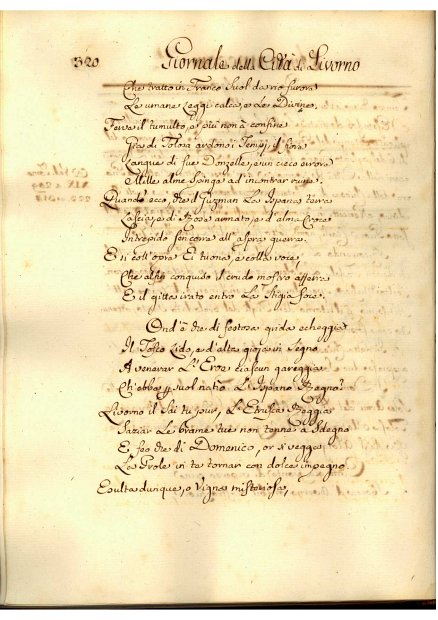 320 Giornale della Città di Livorno
Che tratto in Franco Suol da rio furore
Le umane Leggi calca, e Le Divine,
Ferve il tumulto, e più non à confine
Già di Tolosa ardono i Tempj, il fiore
Langue di sue Donzelle, e un cieco errore
Mille alme spinge ad incontrar ruine.
Quando ecco, che il Guzman La Ispana terra
Lascia, e di Rosa armato, e d'alma Croce
Intrepido sen corre all' aspra guerra.
E si coll'opra Ei tuona, e colla voce,
Che alfin conquiso il crudo mostro afferra
E il gitta irato entro La Stigia foce.
Ond'è che di festose grida echeggia
Il Tosco Lido, e d'alta gioja in segno
A venerar L'Eroe ciascun gareggia
Ch'ebbe suol natio L'Ispano Regno
Livorno il Sai tu pur, L'Etrusca Reggia
Saziar Le brame tue non tenne a Sdegno
E feo che di Domenico, or si vegga
La Prole in te tornar con dolce impegno
Esulta dunque, o Vigna misteriosa,